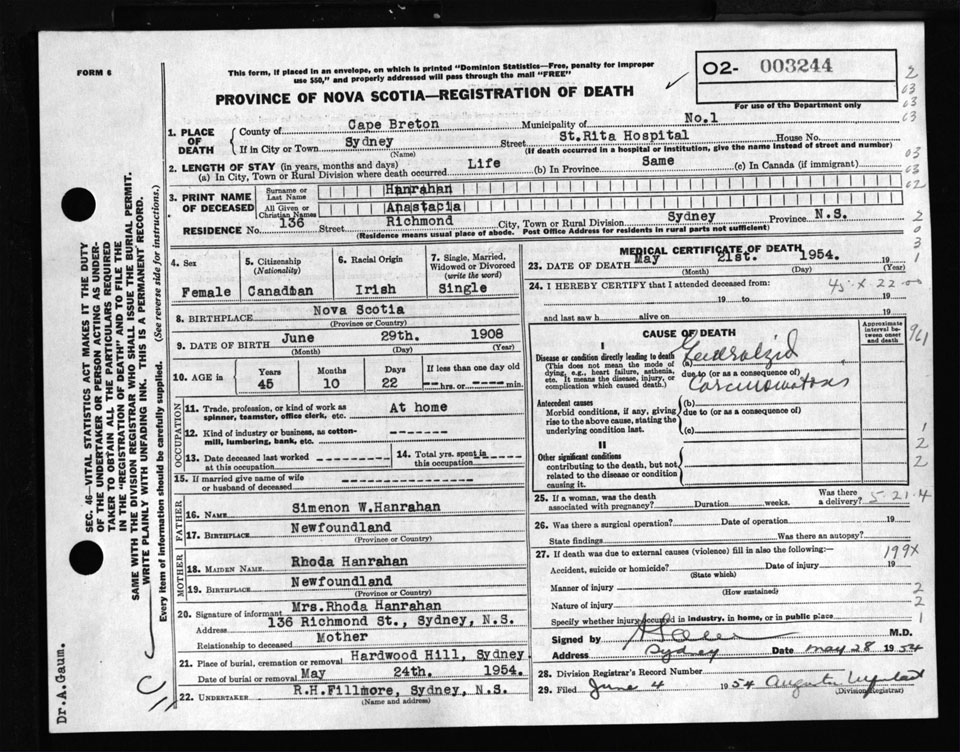 FORM 6
This form, if placed in an envelope, on which is printed "Dominion Statistics—Free, penalty for improper
use $50," and properly addressed will pass through the mail "FREE"
O2- 003244
For use of the Department only
PROVINCE OF NOVA SCOTIA—REGISTRATION OF DEATH
1. PLACE OF DEATH
County of Cape Breton Municipality of No.1
If in City or Town Sydney Street St.Rita Hospital House No.
(Name) (If death occurred in a hospital or institution, give the name instead of street and number)
2. LENGTH OF STAY (in years, months and days)
(a) In City, Town or Rural Division where death occurred Life (b) In Province Same (c) In Canada (if immigrant)
3. PRINT NAME OF DECEASED
Surname or Last Name Hanrahan
All Given or Christian Names Anastacia
RESIDENCE No. 136 Street Richmond City, Town or Rural Division Sydney Province N.S.
(Residence means usual place of abode. Post Office Address for residents in rural parts not sufficient)
4. Sex Female
5. Citizenship (Nationality) Canadian
6. Racial Origin Irish
7. Single, Married, Widowed or Divorced (write the word) Single
8. BIRTHPLACE Nova Scotia
(Province or Country)
9. DATE OF BIRTH June 29th. 1908
(Month) (Day) (Year)
10. AGE in Years 45 Months 10 Days 22 If less than one day old hrs. or min.
OCCUPATION
11. Trade, profession, or kind of work as spinner, teamster, office clerk, etc. At home
12. Kind of industry or business, as cotton-mill, lumbering, bank, etc. -------
13. Date deceased last worked at this occupation -------
14. Total yrs. spent in this occupation -------
15. If married give name of wife or husband of deceased --------------
FATHER
16. NAME Simenon W.Hanrahan
17. BIRTHPLACE Newfoundland
(Province or Country)
MOTHER
18. MAIDEN NAME Rhoda Hanrahan
19. BIRTHPLACE Newfoundland
(Province or Country)
20. Signature of informant Mrs.Rhoda Hanrahan
Address 136 Richmond St., Sydney, N.S.
Relationship to deceased Mother
21. Place of burial, cremation or removal Hardwood Hill, Sydney
Date of burial or removal May 24th. 1954.
22. UNDERTAKER R.H.Fillmore, Sydney, N.S.
(Name and address)
MEDICAL CERTIFICATE OF DEATH
23. DATE OF DEATH May 21st. 1954. 19
(Month) (Day) (Year)
24. I HEREBY CERTIFY that I attended deceased from:
19 to 19
and last saw h alive on 19
CAUSE OF DEATH
Approximate interval between onset and death
I
Disease or condition directly leading to death
(This does not mean the mode of dying, e.g., heart failure, asthenia, etc. It means the disease, injury, or complication which caused death.)
(a)
due to (or as a consequence of)
Carcinomatosis
Antecedent causes
Morbid conditions, if any, giving rise to the above cause, stating the underlying condition last.
(b)
due to (or as a consequence of)
(c)
II
Other significant conditions
contributing to the death, but not related to the disease or condition causing it.
25. If a woman, was the death associated with pregnancy? Duration weeks. Was there a delivery? 5.21.4
26. Was there a surgical operation? Date of operation 19
State findings Was there an autopsy?
27. If death was due to external causes (violence) fill in also the following:—
199X
Accident, suicide or homicide? Date of injury 19
(State which)
Manner of injury
(How sustained)
Nature of injury
Specify whether injury occurred in industry, in home, or in public place
Signed by M.D.
Address Sydney Date May 28 1954
28. Division Registrar's Record Number
29. Filed June 4 1954
(Division Registrar)
SEC. 46—VITAL STATISTICS ACT MAKES IT THE DUTY
OF THE UNDERTAKER OR PERSON ACTING AS UNDER-
TAKER TO OBTAIN ALL THE PARTICULARS REQUIRED
IN THE "REGISTRATION OF DEATH" AND TO FILE THE
SAME WITH THE DIVISION REGISTRAR WHO SHALL ISSUE THE BURIAL PERMIT.
WRITE PLAINLY WITH UNFADING INK. THIS IS A PERMANENT RECORD.
Every item of information should be carefully supplied. (See reverse side for instructions.)
Dr.A.Gaum.